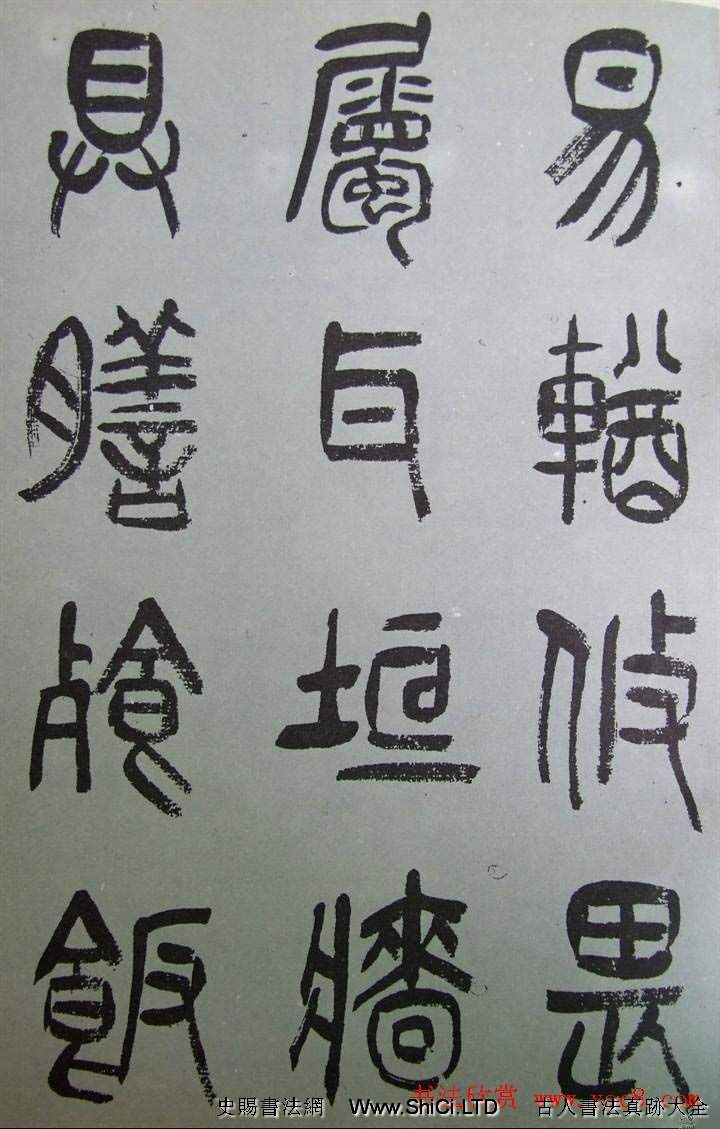 易輶攸畏
屬耳垣牆
具膳飱飯
书法欣赏 www.yac8.com
史賜書法網 Www.ShiCi.LTD 古人書法真跡大全